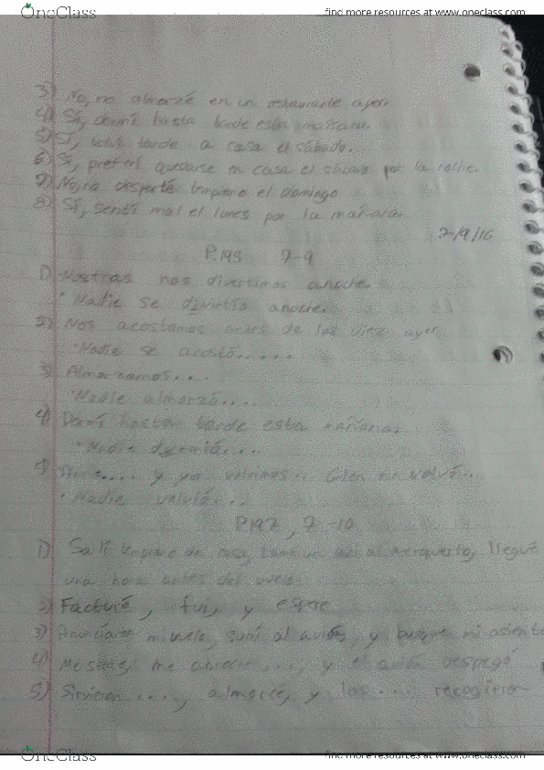 OneClass
find more resources at www.oneclass.com
3) No, no almorzé en un restaurante ayer.
4) Sí, dormí hasta tarde esta mañana.
5) Sí, volví tarde a casa el sábado.
6) Sí, preferí quedarse en casa el por la noche.
7) No, no desperté temprano el domingo
8) Sí, sentí mal el lunes por la mañana.
2/9/16
P.193 7-9
1) Nostras nos divertimos anoche.
• Nadie se divirtió anoche.
2) Nos acostamos antes de las diez ayer.
• Nadie se acostó.....
3) Almorzamos...
• Nadie almorzó....
4) Dormí hasta tarde esta mañana.
• Nadie durmió....
5) y ya volvimos... no volvó...
• Nadie volvió...
P197, 7-10
1) Salí temprano de casa, al aeropuerto, llegué
una hora antes del vuelo
2) Facturé, fui, y espere
3) mi vuelo, subí al avión, y busque mi asiento
4) Me senté, me abroche ...., y el avión despegó
5) Sirvieron ...., almorcé, y los ... recogieron
OneClass
find more resources at www.oneclass.com